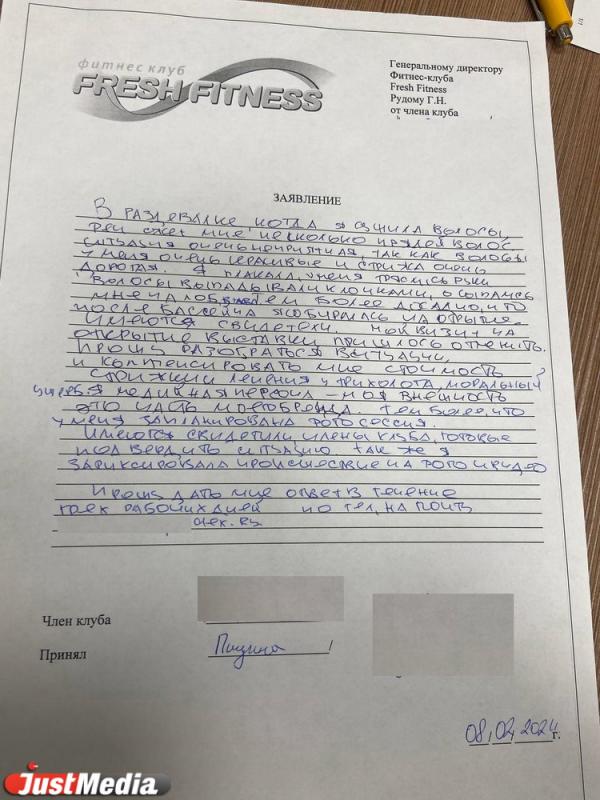 фитнес клуб
FRESH FITNESS
Генеральному директору
Фитнес-клуба
Fresh Fitness
Рудому Г.Н.
от члена клуба
ЗАЯВЛЕНИЕ
В раздевалке когда я сушила волосы,
фен сжег мне несколько прядей волос.
Ситуация очень неприятная, так как волосы
у меня очень красивые и стрижка очень
дорогая. Я плакала, у меня тряслись руки
Волосы выпадывали клочками, осыпались
мне на лоб. Тем более досадно, что
после бассейна я собиралась на открытие.
Имеются свидетели. Мой визит на
открытие выставки пришлось отменить.
Прошу разобраться в ситуации,
и компенсировать мне стоимость
стрижки лечения у трихолога, моральный
ущерб. Я медийная персона - моя внешность
это часть моего бренда. Тем более, что
у меня запланирована фотосессия.
Имеются свидетели, члены клуба, готовые
подтвердить ситуацию. Так же я
зафиксировала происшествие на фото и видео
Прошу дать мне ответ в течение
трех рабочих дней по тел, на почту
Член клуба
Принял
08.02.2024 г.
JustMedia